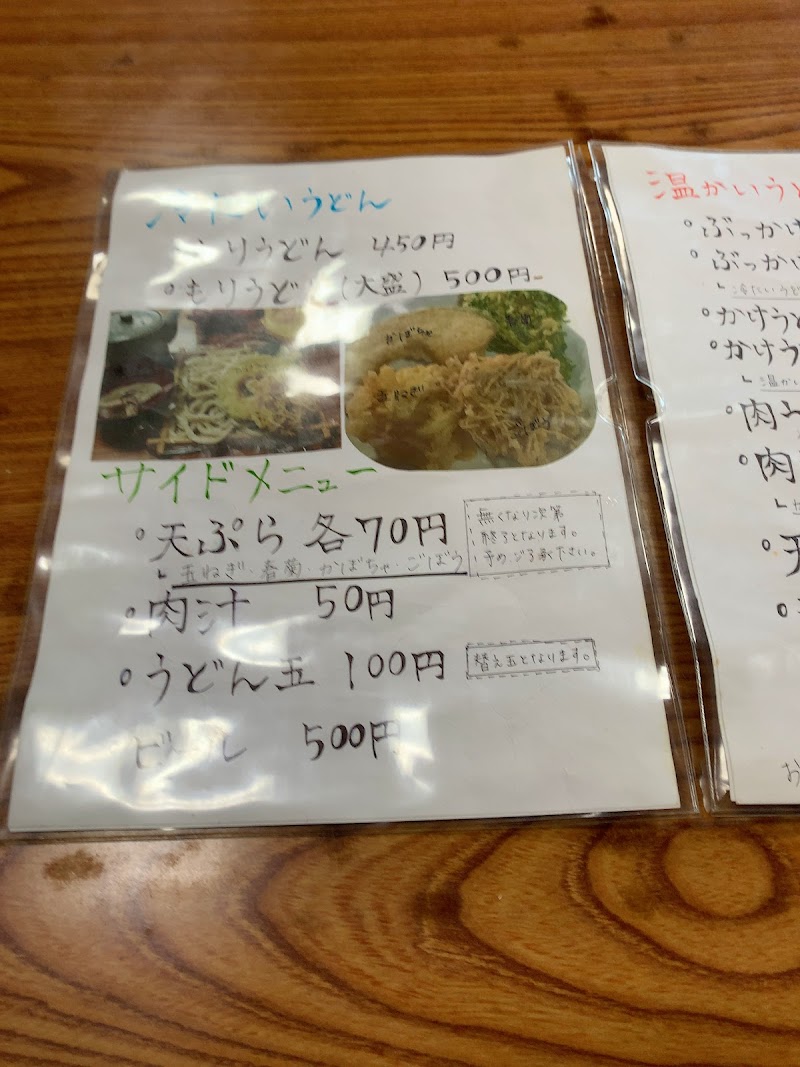 冷たいうどん
もりうどん 450円
もりうどん(大盛) 500円
かぼちゃ
春菊
玉ねぎ
ごぼう
サイドメニュー
天ぷら 各70円
玉ねぎ・春菊・かぼちゃ・ごぼう
無くなり次第
終了となります。
予めご了承ください。
肉汁 50円
うどん玉 100円
替え玉となります。
ビール 500円
温かいうど
ぶっかけ
ぶっかけ
冷たいうど
かけうど
かけう
温か
肉う
肉
天
お